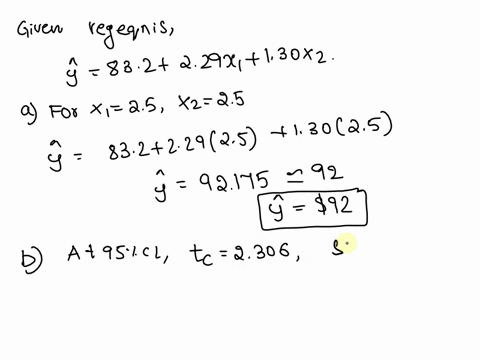 Given regeqnis,
ŷ = 83.2 + 2.29x₁ + 1.30x₂.
a) For x₁ = 2.5, x₂ = 2.5
ŷ = 83.2 + 2.29(2.5) + 1.30(2.5)
ŷ = 92.175 ≃ 92
ŷ = $92
b) At 95% CI, t_c = 2.306, s